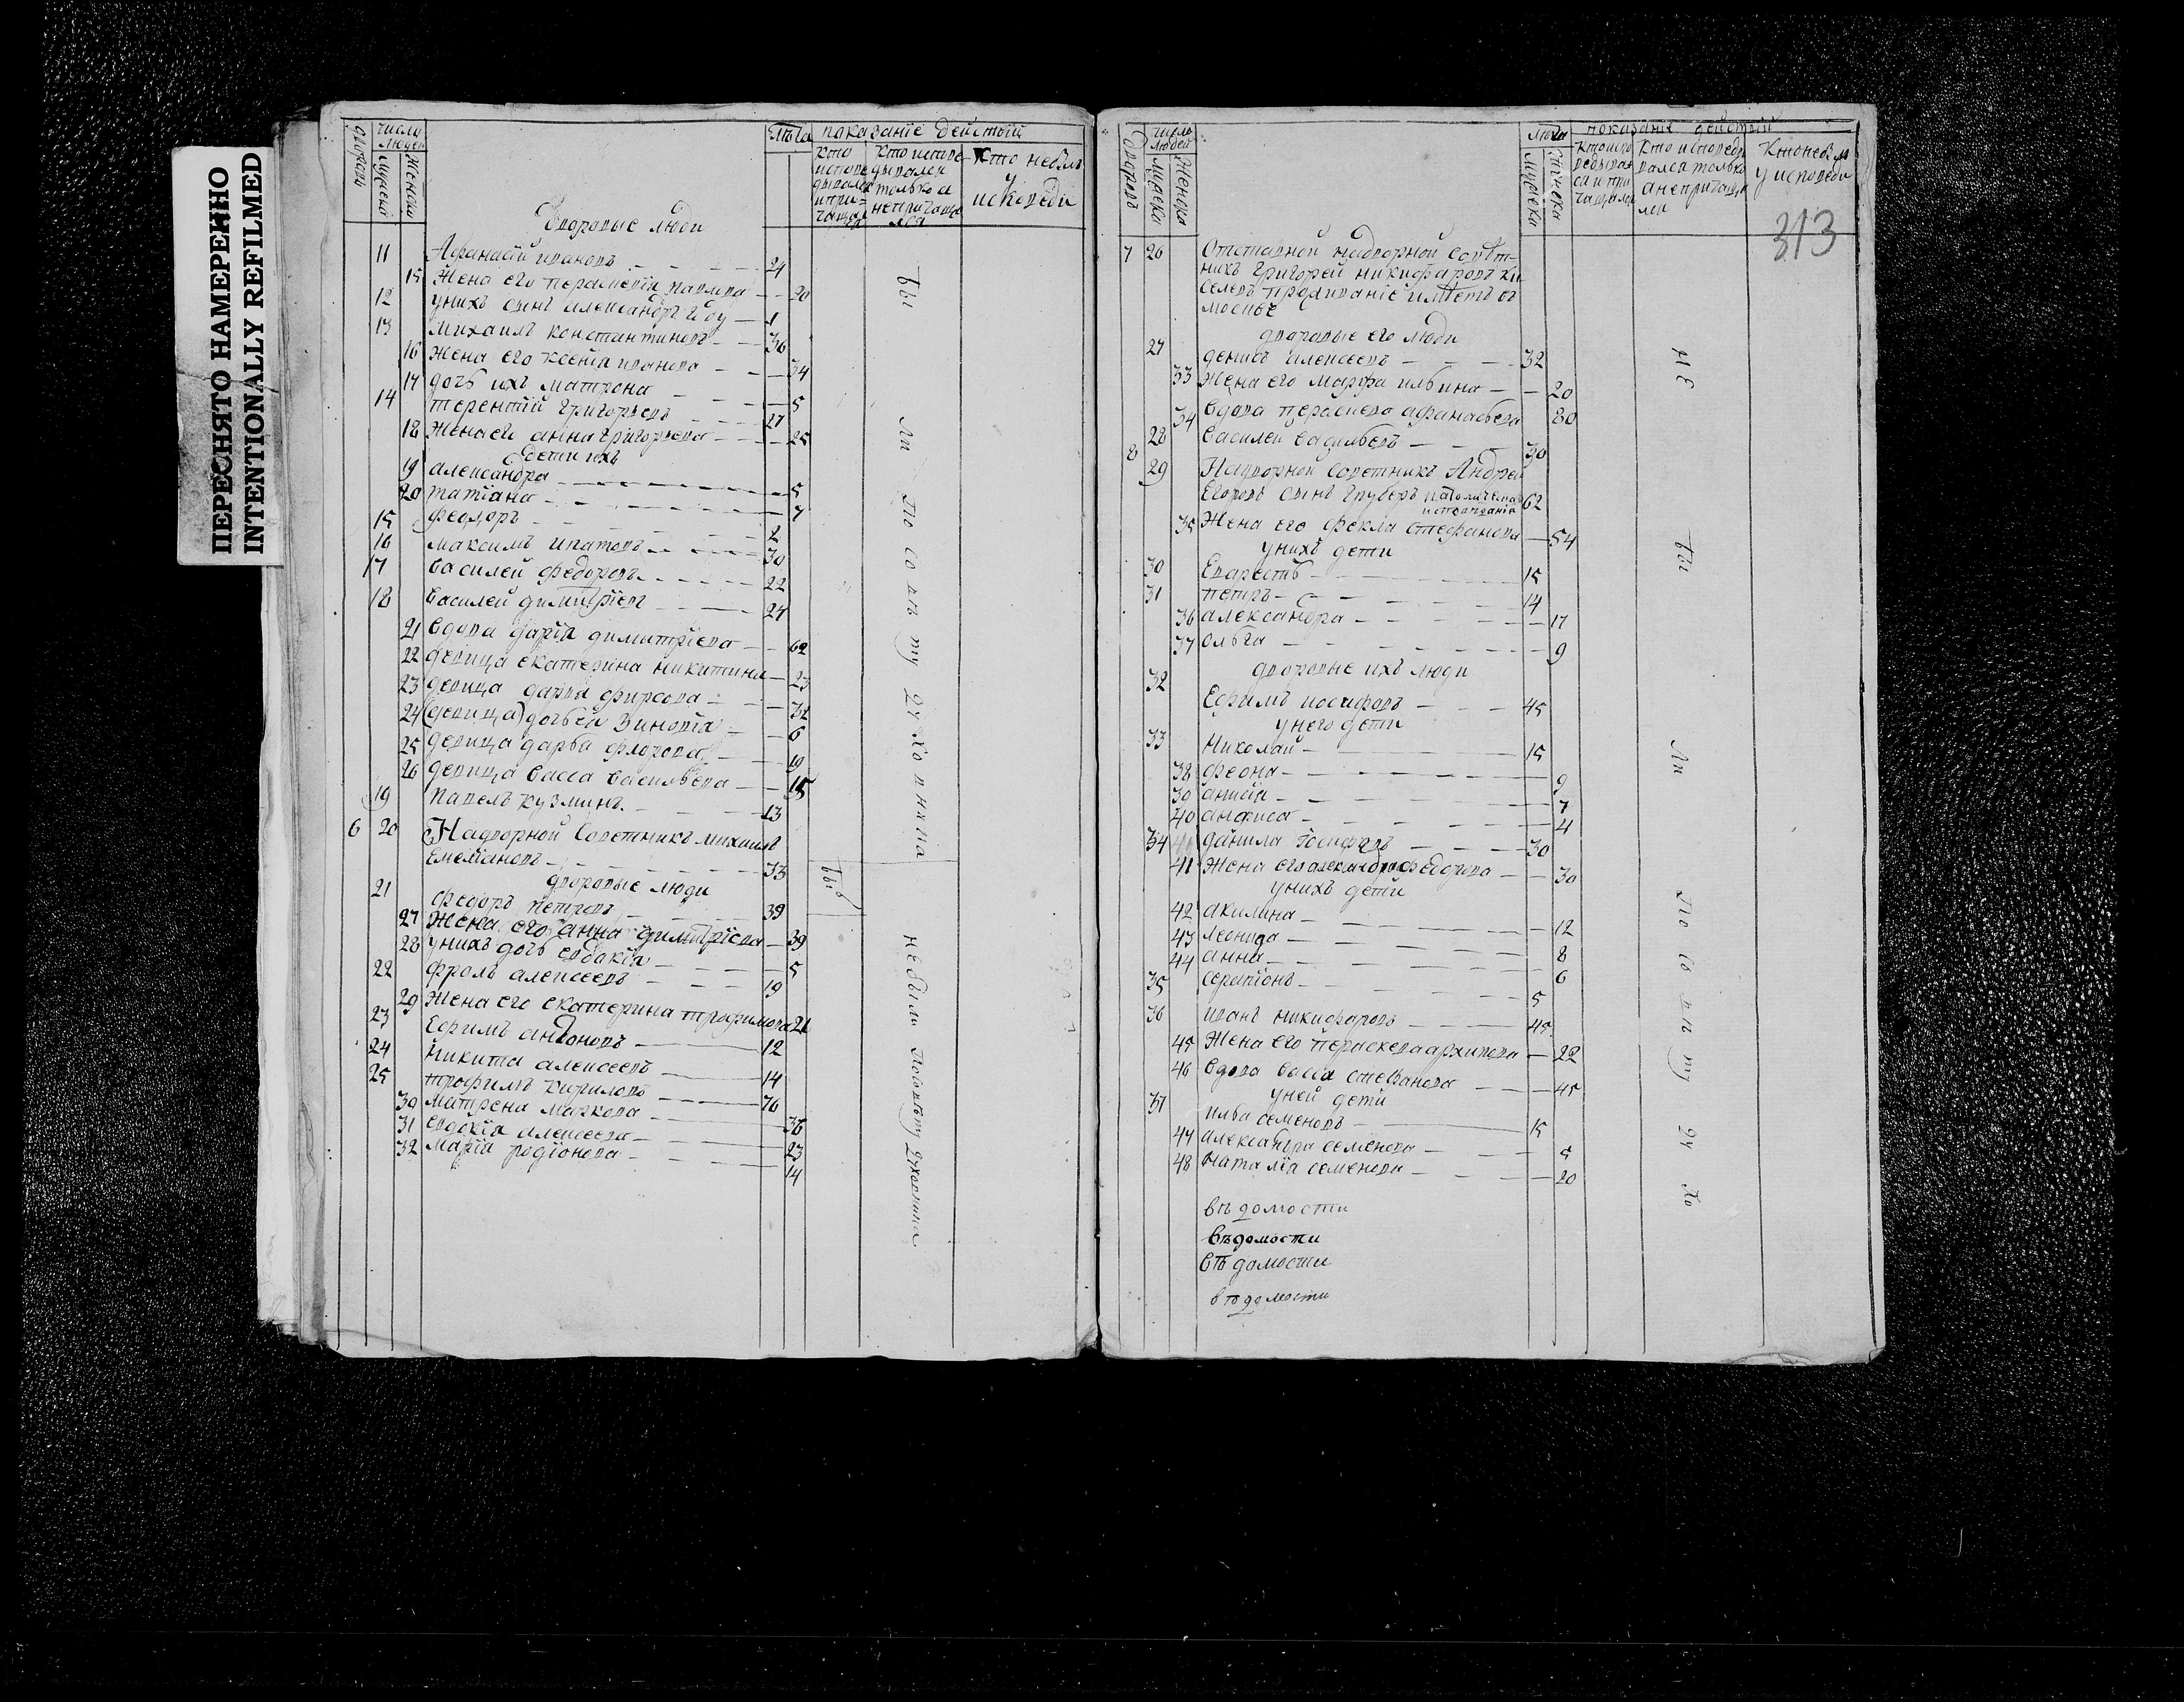 ПЕРЕСНЯТО НАМЕРЕННО
INTENTIONALLY REFILMED
число людей
лѣта
показаніе действій
кто исповедывался и причащался
кто исповедывался только а непричащался
кто небылъ у исповеди
Дворовые люди
11 Афанасій ивановъ 24
15 Жена его параскевїя павлова 20
12 у нихъ сынъ александръ 1
13 михаилъ константиновъ 36
16 Жена его ксенїя иванова 34
17 дочь ихъ матрона 5
14 терентїй григорьевъ 27
18 Жена его анна григорьева 25
дети ихъ
19 александра 5
20 татїана 7
15 феодоръ 2
16 максимъ ипатовъ 30
17 василей федоровъ 22
18 василей димитрїевъ 24
21 вдова дарїя димитрїева 62
22 девица екатерина никитина 23
23 девица дарья фирсова 32
24 (девица) дочь ей зиновїа 6
25 девица дарья флорова 19
26 девица васса васильева 15
19 павелъ кузминъ 13
6 20 Надворной Советникъ михаилъ
емелїановъ 33
дворовые люди
21 федоръ петровъ 39
27 Жена его анна димитрїева 39
28 у нихъ дочь евдокїя 5
22 фролъ алексеевъ 19
29 Жена его екатерина трофимова 21
23 Ефримъ антоновъ 12
24 никита алексеевъ 14
25 трофимъ кириловъ 76
30 матрена маркова 36
31 евдокїя алексеева 23
32 марїя родїонова 14
бы ли по совѣту духовника
бывъ
небыли посовѣту духовника
число людей
мужеска
женска
лѣта
мужеска
женска
показаніе действій
кто исповедывался и причащался
кто исповедовался только а непричащался
кто небылъ у исповеди
313
7 26 Отставной надворной Совѣт-
никъ григорей никифаровъ Ки
селевъ проживаніе имѣетъ въ
москве
дворовые его люди
27 денисъ алексеевъ 32
33 Жена его марфа ильина 20
34 Вдова параскева афанасьева 80
28 Василей Васильевъ 30
8 29 Надворной Советникъ Андрей
Егоровъ сынъ 62
35 Жена его фекла стефанова 54
у нихъ дети
30 Еварестъ 15
31 петръ 14
36 александра 17
37 ольга 9
дворовые ихъ люди
32 Ефримъ иосифовъ 45
у него дети
33 Николай 15
38 феона 9
39 анисїя 7
40 анфиса 4
34 данила Іосифовъ 30
41 Жена его александра федорова 30
у нихъ дети
42 акилина 12
43 леонида 8
44 анна 6
35 серапїонъ 5
36 иванъ никифаровъ 45
45 Жена его параскева архипова 22
46 Вдова васса стефанова 45
у ней дети
37 илья семеновъ 15
47 александра семенова 5
48 наталїя семенова 20
не бы ли по со вѣ ту ду хо
вѣдомости
вѣдомости
вѣдомости
вѣдомости